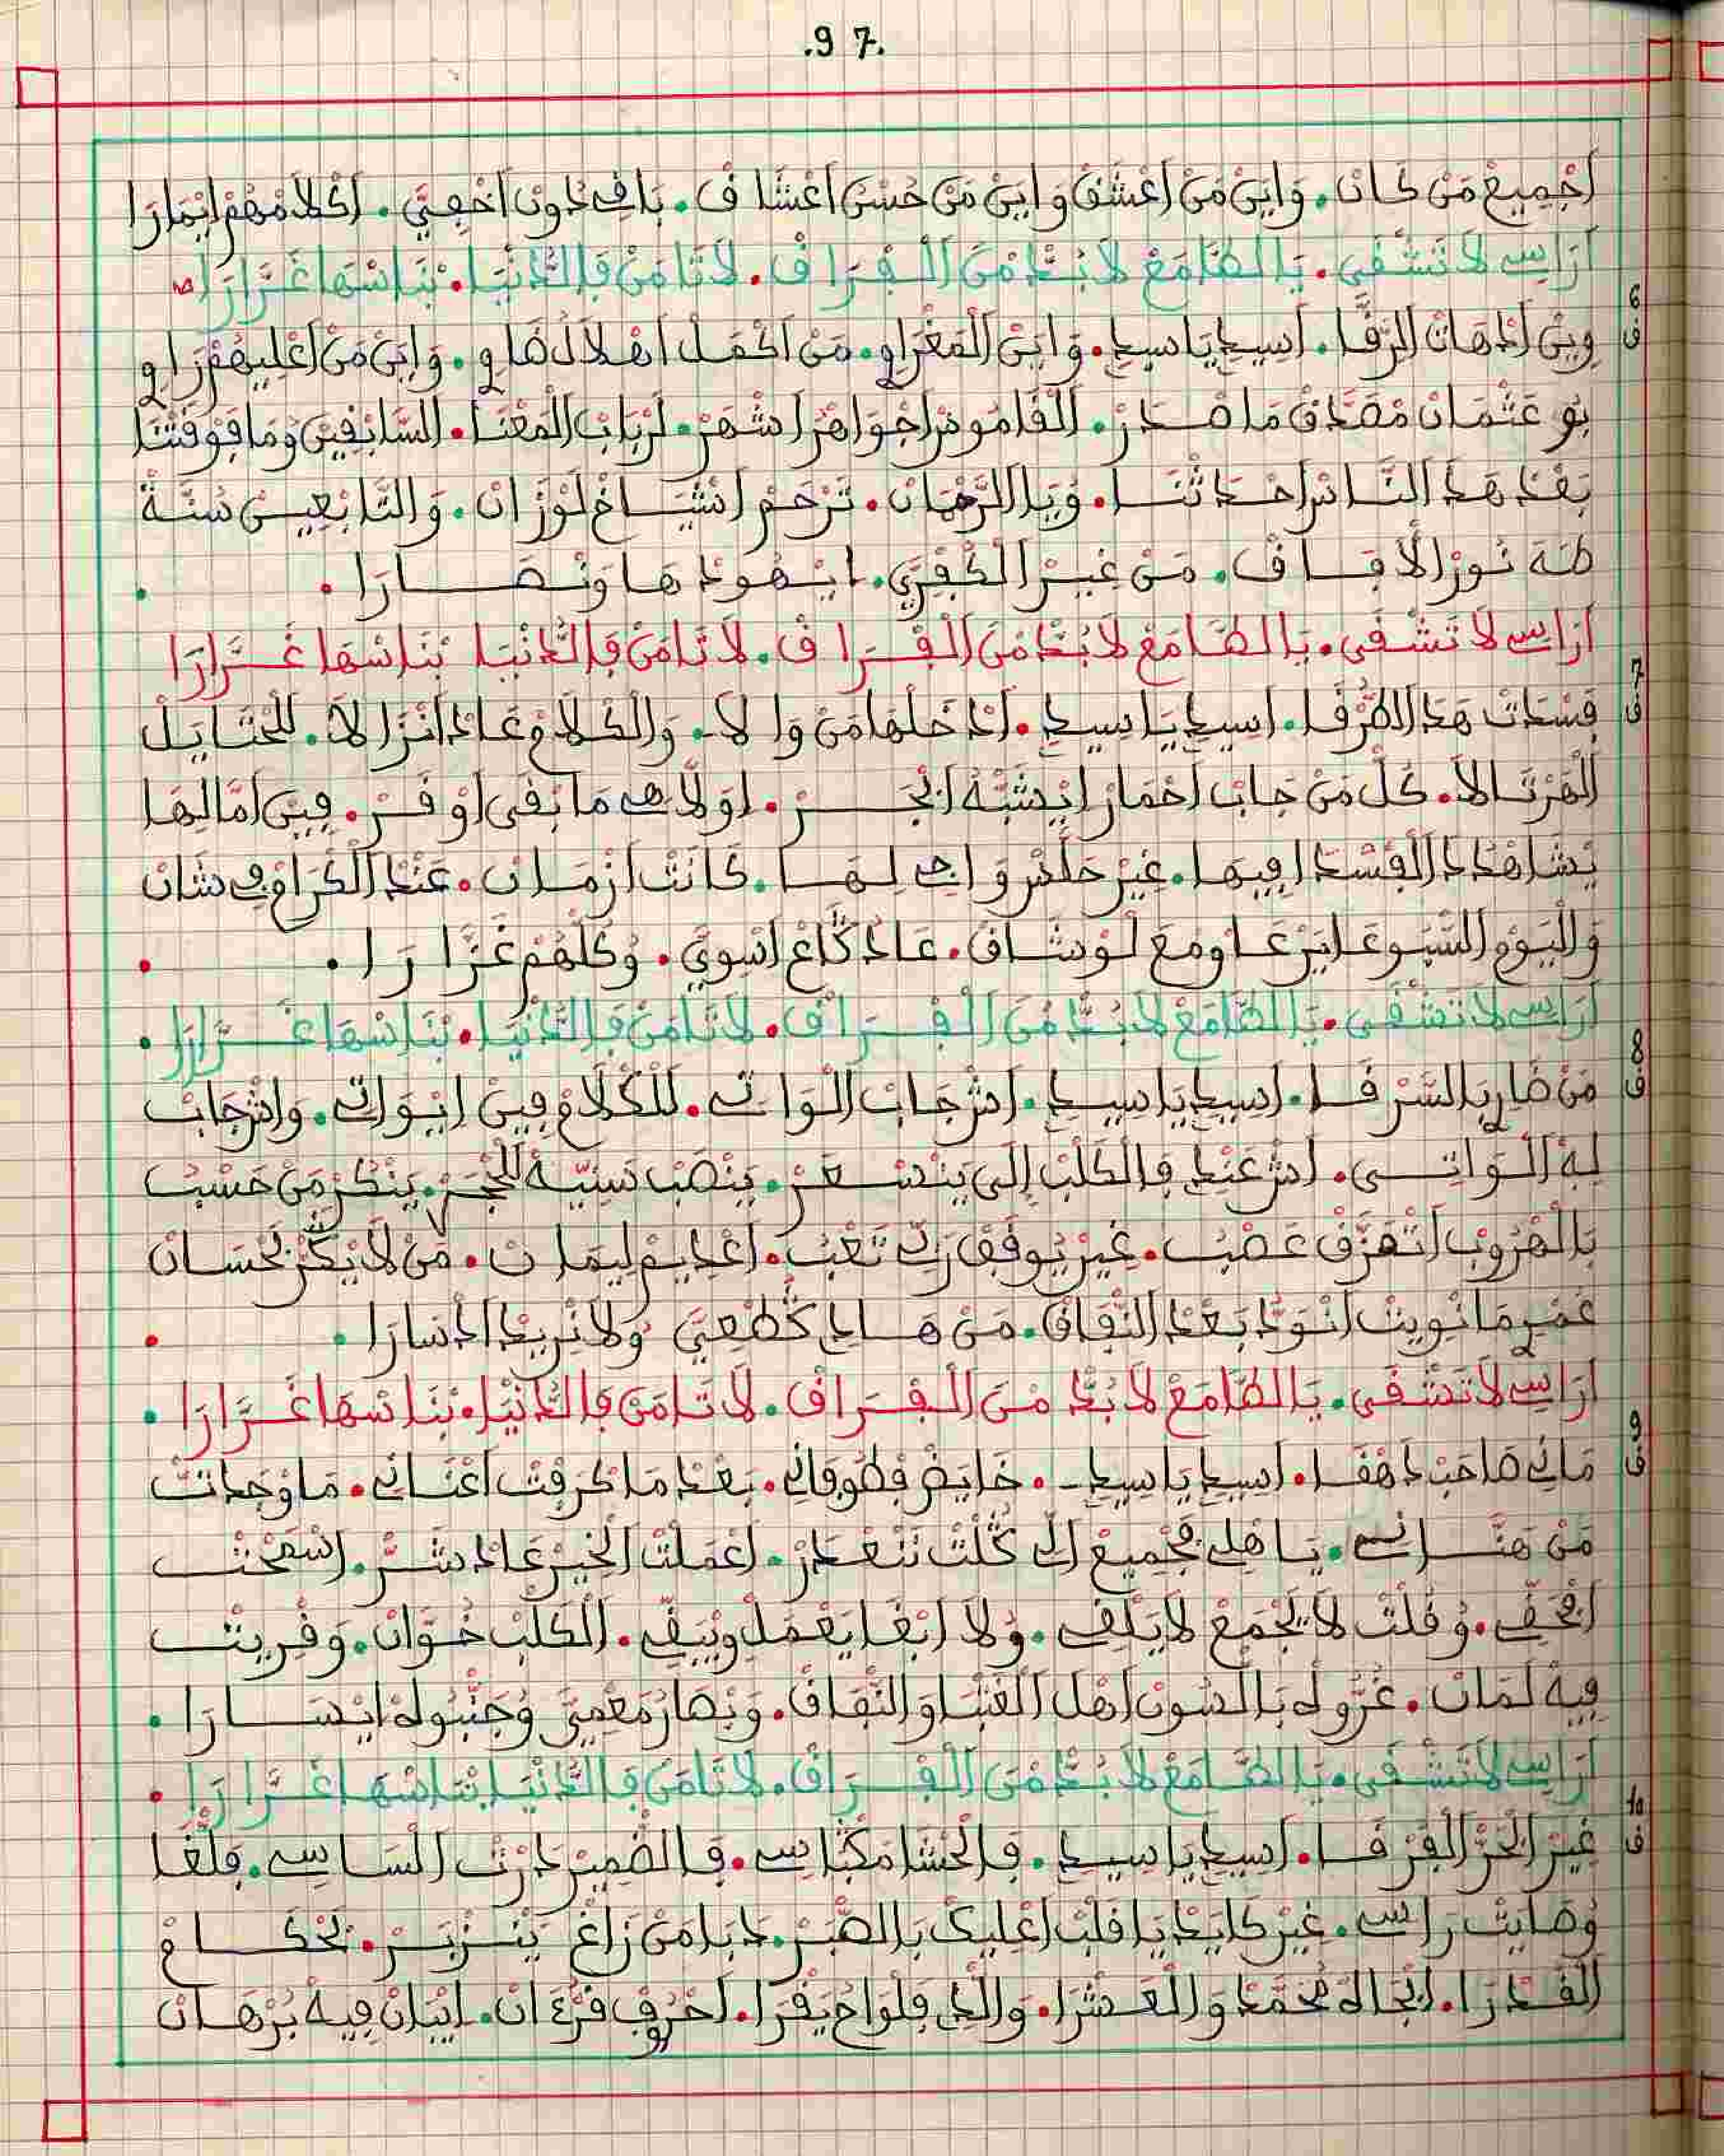 .97.
أجميع من كان. واين من اعشق واين من حسن اعشاق. باقي دون اخفي. اكلامهم ايمارا
اراسي لا تشقى. يا الطامع لا بد من الفراق. لا تامن فالدنيا. بناسها غرارا
6 ف
وين ادهات الرفا. اسيدي يا سيدي. واين المغراوي. من اكمل اهلال ضاوي. واين من اعليهم راوي
بو عثمان مصدق ما صدر. القاموس اجواهر اشهر. لرباب المعنا. السابقين وما فوقتنا
بعد هذ الناس احداثنا. ويا الرحمان. ترحم اشياخ لوزان. والتابعين سنة
طه نور الافاق. من غير الكفري. ايهودها ونصارا.
اراسي لا تشقى. يا الطامع لا بد من الفراق. لا تامن فالدنيا بناسها غرارا
7 ف
فسدات هذ الطرفا. اسيدي يا سيدي. ادخلها من والا. والكلام عاد انزالا. للحتايل
الهرتالا. كل من جاب احمار ايشبه انجر. اولاهي ما بقى اوفر. فين امالها
يشاهد الفسدا فيها. غير حلس واجي لها. كانت ازمان. عند الكرام في شان
واليوم السبوعا يرعاو مع لوشاق. عاد ڭاع اسوي. وكلهم غزارا.
اراسي لا تشقى. يا الطامع لا بد من الفراق. لا تامن فالدنيا. بناسها غرارا.
8 ف
من ضاري بالسرفا. اسيدي يا سيدي. اش جاب الواتي. للكلام فين ايواتي. واش جاب
ليه الواتي. اش عندي فالكلب الى يندسعر. ينصب سنيه للحجر. ينكر من حسب
بالهروب اتفرق عصب. غير يوفق ربي تعب. اعديم ليمان. من لا يكر بحسان
عمري ما نويت انود بعد النفاق. من هادي ڭطعي ولا نريد ادسارا.
اراسي لا تشقى. يا الطامع لا بد من الفراق. لا تامن فالدنيا. بناسها غرارا.
9 ف
ماني صاحب دهفا. اسيدي يا سيدي. خايض فطوفاني. بعد ما كرفت اعناني. ما وجدت
من هناني. يا هلي فجميع الي ڭلت ننعدر. اعملت الخير عاد شر. اسمحت
افحقي. وقلت لا يجمع لا يلقي. ولا ابغا يعمل ويبقي. الكلب خوان. وفريت
فيه لمان. غرو له بالسون اهل الغبا والنفاق. وبصار معمي وجنبوله ايسارا.
اراسي لا تشقى. يا الطامع لا بد من الفراق. لا تامن فالدنيا بناسها غرارا.
10 ف
غير الحر الفرفا. اسيدي يا سيدي. فالحشا مكباسي. فالضمير دارت الساسي. فلغا
وصايت راسي. غير كايد يا قلب اعليك بالصبر. دبا من زاغ ينزبر. لحكام
القدرا. ابجاه محمد والعشرا. والدي فلواح يقرا. احروف قرءان. ايبان فيه برهان